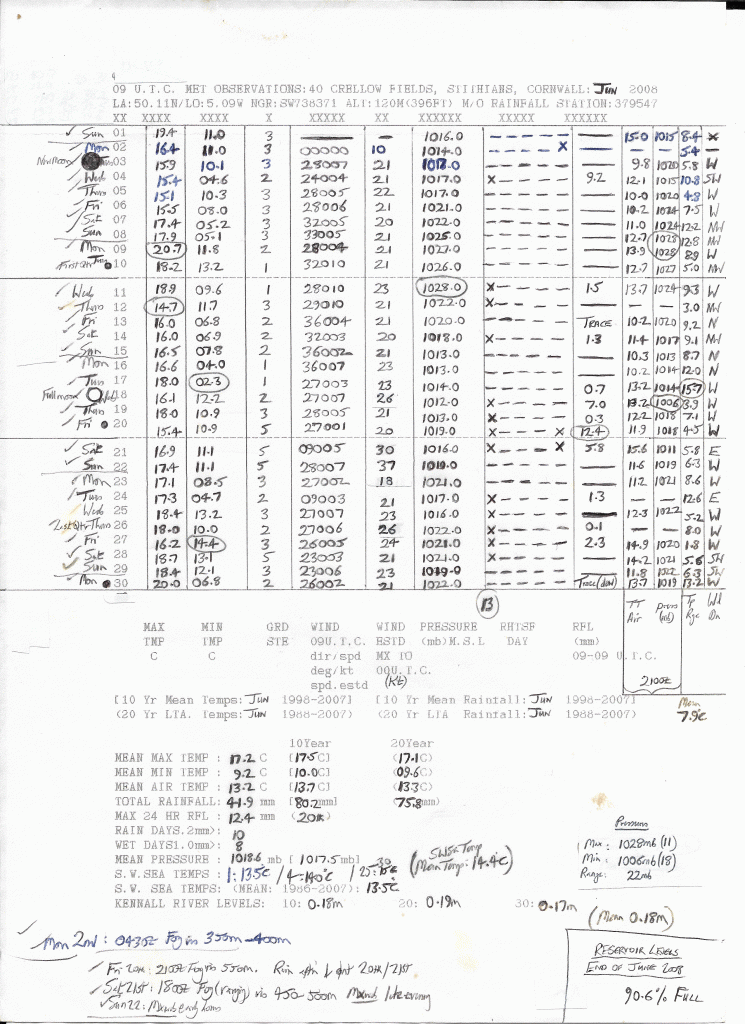 09 U.T.C. MET OBSERVATIONS:40 CRELLOW FIELDS, STITHIANS, CORNWALL: JUN 2008
LA:50.11N/LO:5.09W NGR:SW738371 ALT:120M(396FT) M/O RAINFALL STATION:379547
XX XXXX XXXX X XXXXX XX XXXXXX XXXXX XXXXXX
Sun 01 19.4 11.0 3 — — 1016.0 — 15.0 1015 8.4 x
Mon 02 16.4 11.0 3 00000 10 1014.0 x — — 5.4 —
New Moon 03 15.9 10.1 3 28007 21 1018.0 — 9.8 1020 5.8 W
Wed 04 15.4 04.6 2 24004 21 1017.0 x 9.2 12.1 1015 10.8 SW
Thurs 05 15.1 10.3 3 28005 22 1017.0 — 10.0 1020 4.8 W
Fri 06 15.5 08.0 3 28006 21 1021.0 — 10.2 1024 7.5 W
Sat 07 17.4 05.2 3 32005 20 1022.0 — 11.0 1024 12.2 NW
Sun 08 17.9 05.1 3 33005 21 1025.0 — 12.7 1028 12.8 NW
Mon 09 20.7 11.8 2 28004 21 1027.0 — 13.9 1028 8.9 W
First Qtr Tues 10 18.2 13.2 1 32010 21 1026.0 — 12.7 1027 5.0 NW
Wed 11 18.9 09.6 1 28010 23 1028.0 x 1.5 13.7 1024 9.3 W
Thurs 12 14.7 11.7 3 29010 21 1022.0 x — — — 3.0 NW
Fri 13 16.0 06.8 2 36004 21 1020.0 TRACE 10.2 1020 9.2 N
Sat 14 16.0 06.9 2 32003 20 1018.0 x 1.3 11.4 1017 9.1 NW
Sun 15 16.5 07.8 2 36002 21 1013.0 — 10.3 1013 8.7 N
Mon 16 16.6 04.0 1 36007 23 1013.0 — 10.2 1014 12.0 N
Tues 17 18.0 02.3 1 27003 23 1014.0 0.7 13.2 1014 15.7 W
Full moon Wed 18 16.1 12.2 2 27007 26 1012.0 x 7.0 13.2 1006 3.9 W
Thurs 19 18.0 10.9 3 28005 21 1013.0 x 0.3 12.2 1018 7.1 W
Fri 20 15.4 10.9 5 27001 20 1019.0 x x 12.4 11.9 1018 4.5 W
Sat 21 16.9 11.1 5 09005 30 1016.0 x x 5.8 15.6 1011 5.8 E
Sun 22 17.4 11.1 5 28007 37 1019.0 — 11.6 1019 6.3 W
Mon 23 17.1 08.5 3 27002 18 1021.0 — 11.2 1021 8.6 W
Tues 24 17.3 04.7 2 09003 21 1017.0 x 1.3 — — 12.6 E
Wed 25 18.4 13.2 3 27007 23 1016.0 x — 12.3 1022 5.2 W
Thurs 26 18.0 10.0 2 27006 26 1022.0 x 0.1 — — 8.0 W
Fri 27 16.2 14.4 3 26005 24 1021.0 x 2.3 14.9 1020 1.8 W
Sat 28 18.7 13.1 5 23053 21 1021.0 x — 14.2 1021 5.6 SW
Sun 29 18.4 12.1 3 23006 23 1019.0 — 11.8 1022 6.3 SW
Mon 30 20.0 06.8 2 26002 21 1022.0 Trace (dew) 13.7 1019 13.2 W
13
MAX MIN GRD WIND WIND PRESSURE RHTSF RFL TT Press Tp Wd
TMP TMP STE 09U.T.C. ESTD (mb)M.S.L DAY (mm) Air (mb) Rge Dn
C C dir/spd MX TO 09-09 U.T.C.
deg/kt 00U.T.C.
spd.estd (Kt) 2100Z
[10 Yr Mean Temps: JUN 1998-2007] [10 Yr Mean Rainfall: JUN 1998-2007]
(20 Yr LTA. Temps: JUN 1988-2007) (20 Yr LTA Rainfall: JUN 1988-2007)
Mean 7.9c
10Year 20Year
MEAN MAX TEMP : 17.2 C [17.5C] (17.1C)
MEAN MIN TEMP : 9.2 C [10.0C] (09.6C)
MEAN AIR TEMP : 13.2 C [13.7C] (13.3C)
TOTAL RAINFALL: 41.9 mm [80.2mm] (75.8mm)
MAX 24 HR RFL : 12.4 mm (20th)
RAIN DAYS.2mm): 10
WET DAYS1.0mm): 8
MEAN PRESSURE : 1018.6 mb [1017.5mb]
S.W.SEA TEMPS : 1:13.5C
S.W. SEA TEMPS: (MEAN: 1986-2007): 13.5C
(Mean Temp: 14.4c)
KENNALL RIVER LEVELS: 10: 0.18m 20: 0.19m 30: 0.17m
(Mean 0.18m)
Pressure
Max: 1028mb (11)
Min: 1006mb (18)
Range: 22mb
Mon 2nd: 0435Z Fog vis 350m-400m
Fri 20th: 2100Z Fog vis 550m.
20th/21st
Sat 21st: 1800Z Fog (varying) vis 450-500m
Sun 22:
RESERVOIR LEVELS
END OF JUNE 2008
90.6% FULL